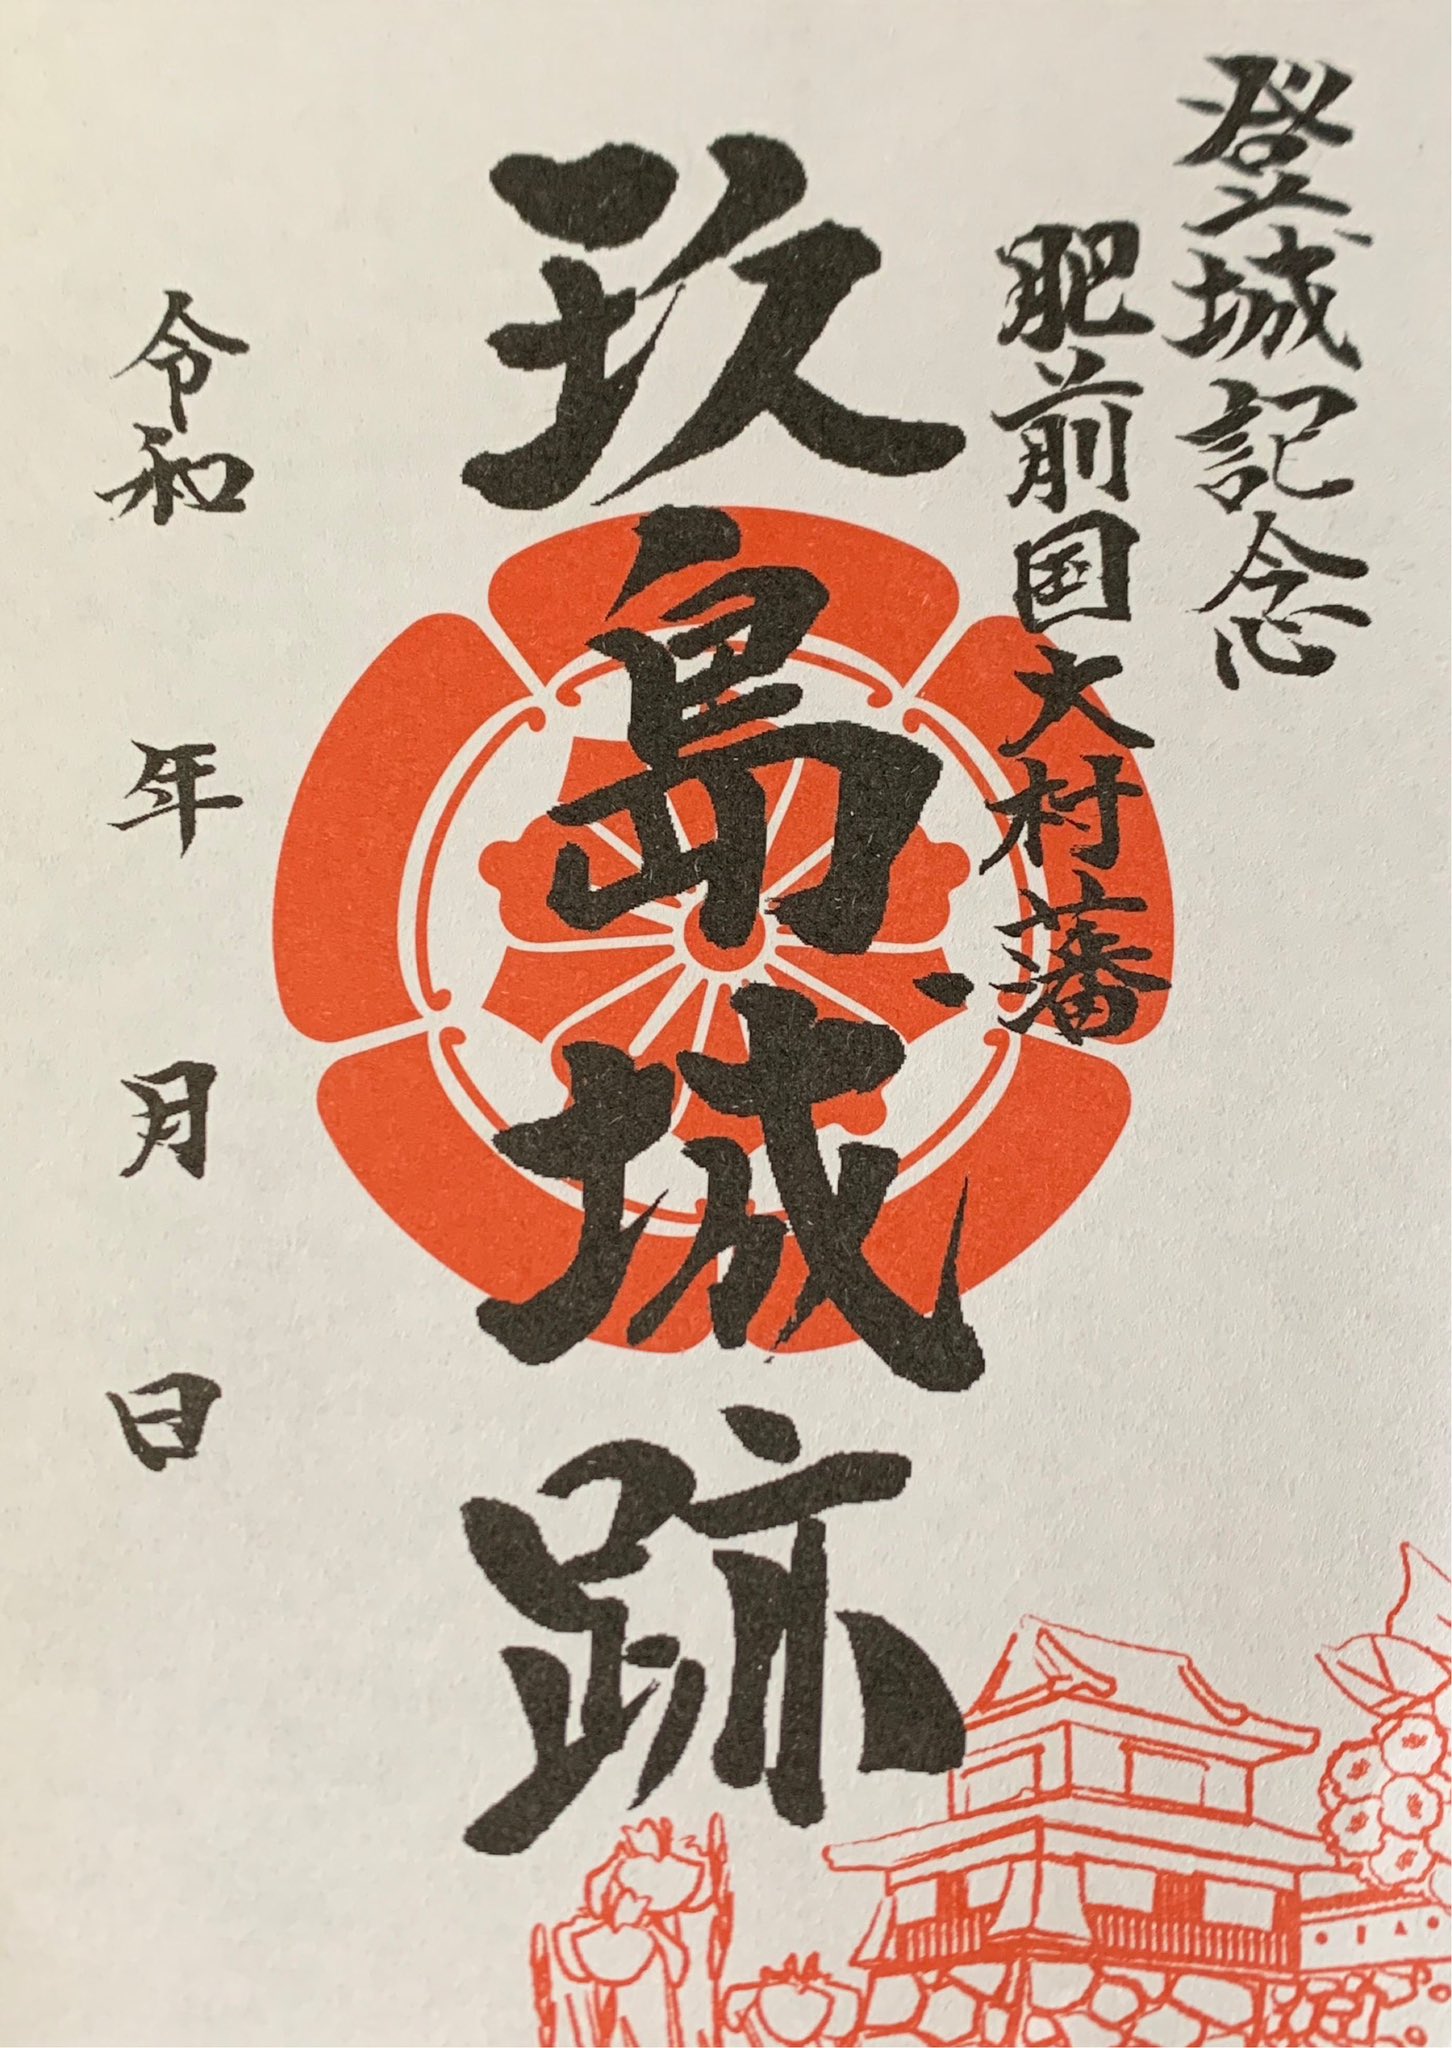 登城記念
肥前国大村藩
玖島城跡
令和 年 月 日